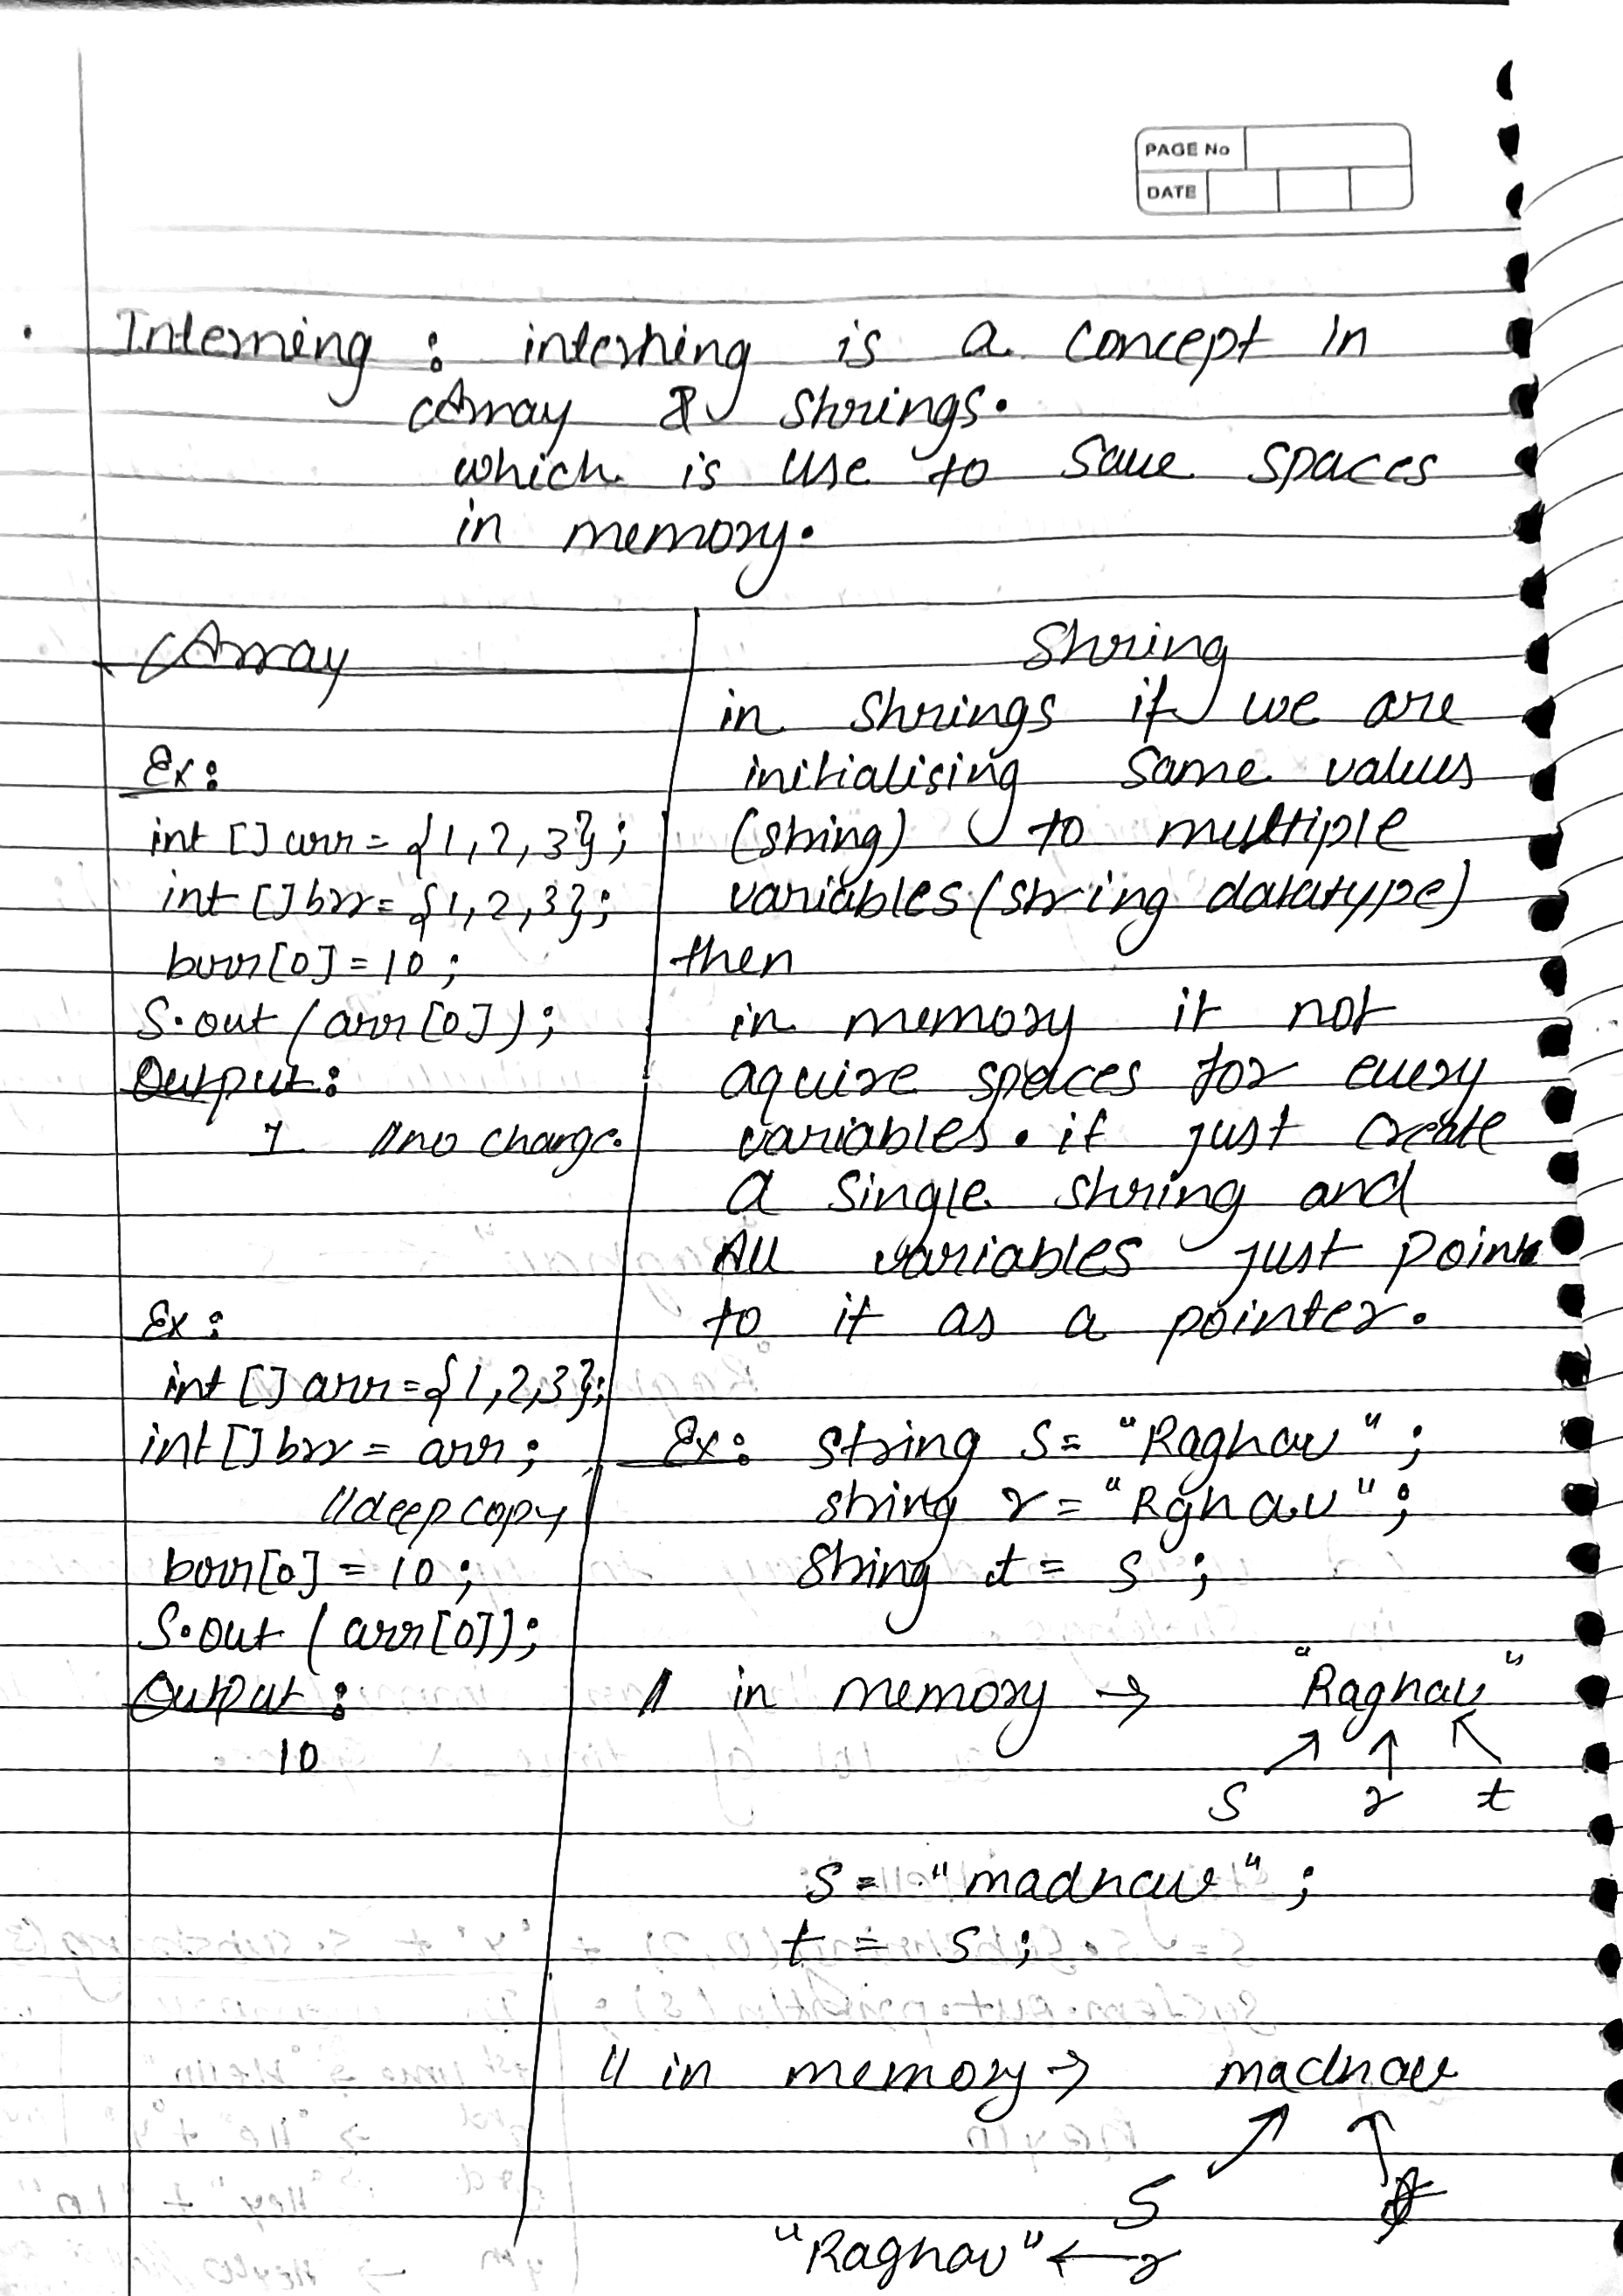 PAGE No
DATE
Interning : interning is a concept in
Array & Strings.
which is use to save spaces
in memory.
Array
Ex:
int [] arr = {1, 2, 3};
int [] brr = {1, 2, 3};
brr[0] = 10;
S.out (arr[0]);
Output:
1 //no change.
Ex:
int [] arr = {1,2,3};
int [] brr = arr;
//deep copy
brr[0] = 10;
S.out (arr[0]);
Output:
10
String
in strings if we are
initialising same values
(string) to multiple
variables (string datatype)
then
in memory it not
aquire spaces for every
variables. it just create
a single string and
All variables just point
to it as a pointer.
Ex: string s = "Raghav";
string r = "Rghav";
string t = s;
// in memory → "Raghav"
s r t
s = "madhav";
t = s;
// in memory → madhav
s t
"Raghav" ← r